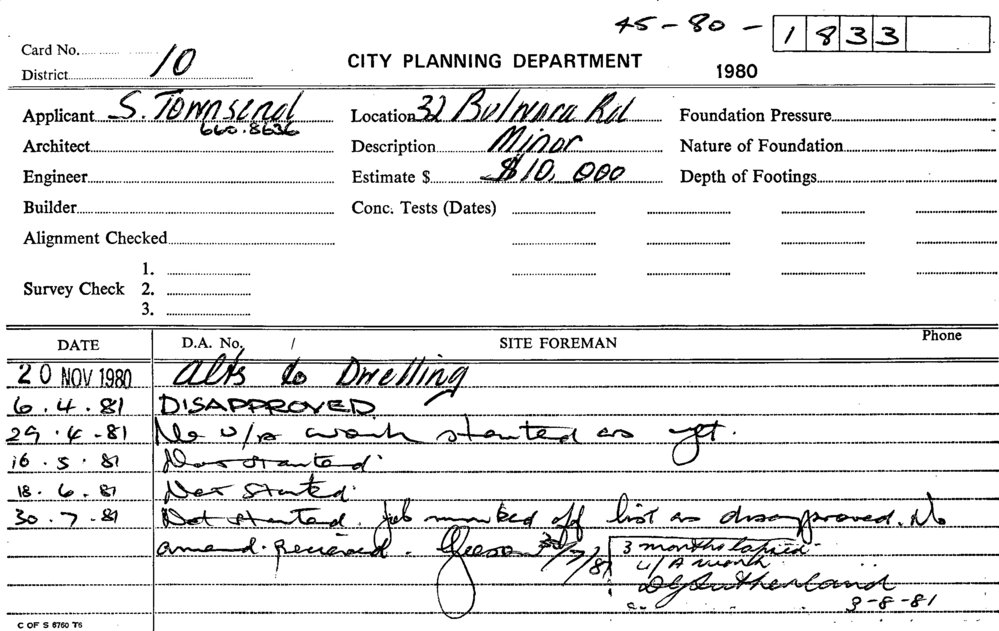 45-80-1833
Card No.
District 10
CITY PLANNING DEPARTMENT
1980
Applicant S. Townsend
660.8636
Location 32 Bulwara Rd
Foundation Pressure
Architect
Description Minor
Nature of Foundation
Engineer
Estimate $ $10,000
Depth of Footings
Builder
Conc. Tests (Dates)
Alignment Checked
1.
Survey Check 2.
3.
DATE D.A. No. / SITE FOREMAN Phone
20 NOV 1980 Alts to Dwelling
6.4.81 DISAPPROVED
29.4.81 No U/A work started as yet.
16.5.81 Not started.
18.6.81 Not Started.
30.7.81 Not started. Job marked off list as disapproved. No
amend. received. 30/7/81
3 months lapsed
U/A work
DG Sutherland
3-8-81
C OF S 6760 T6